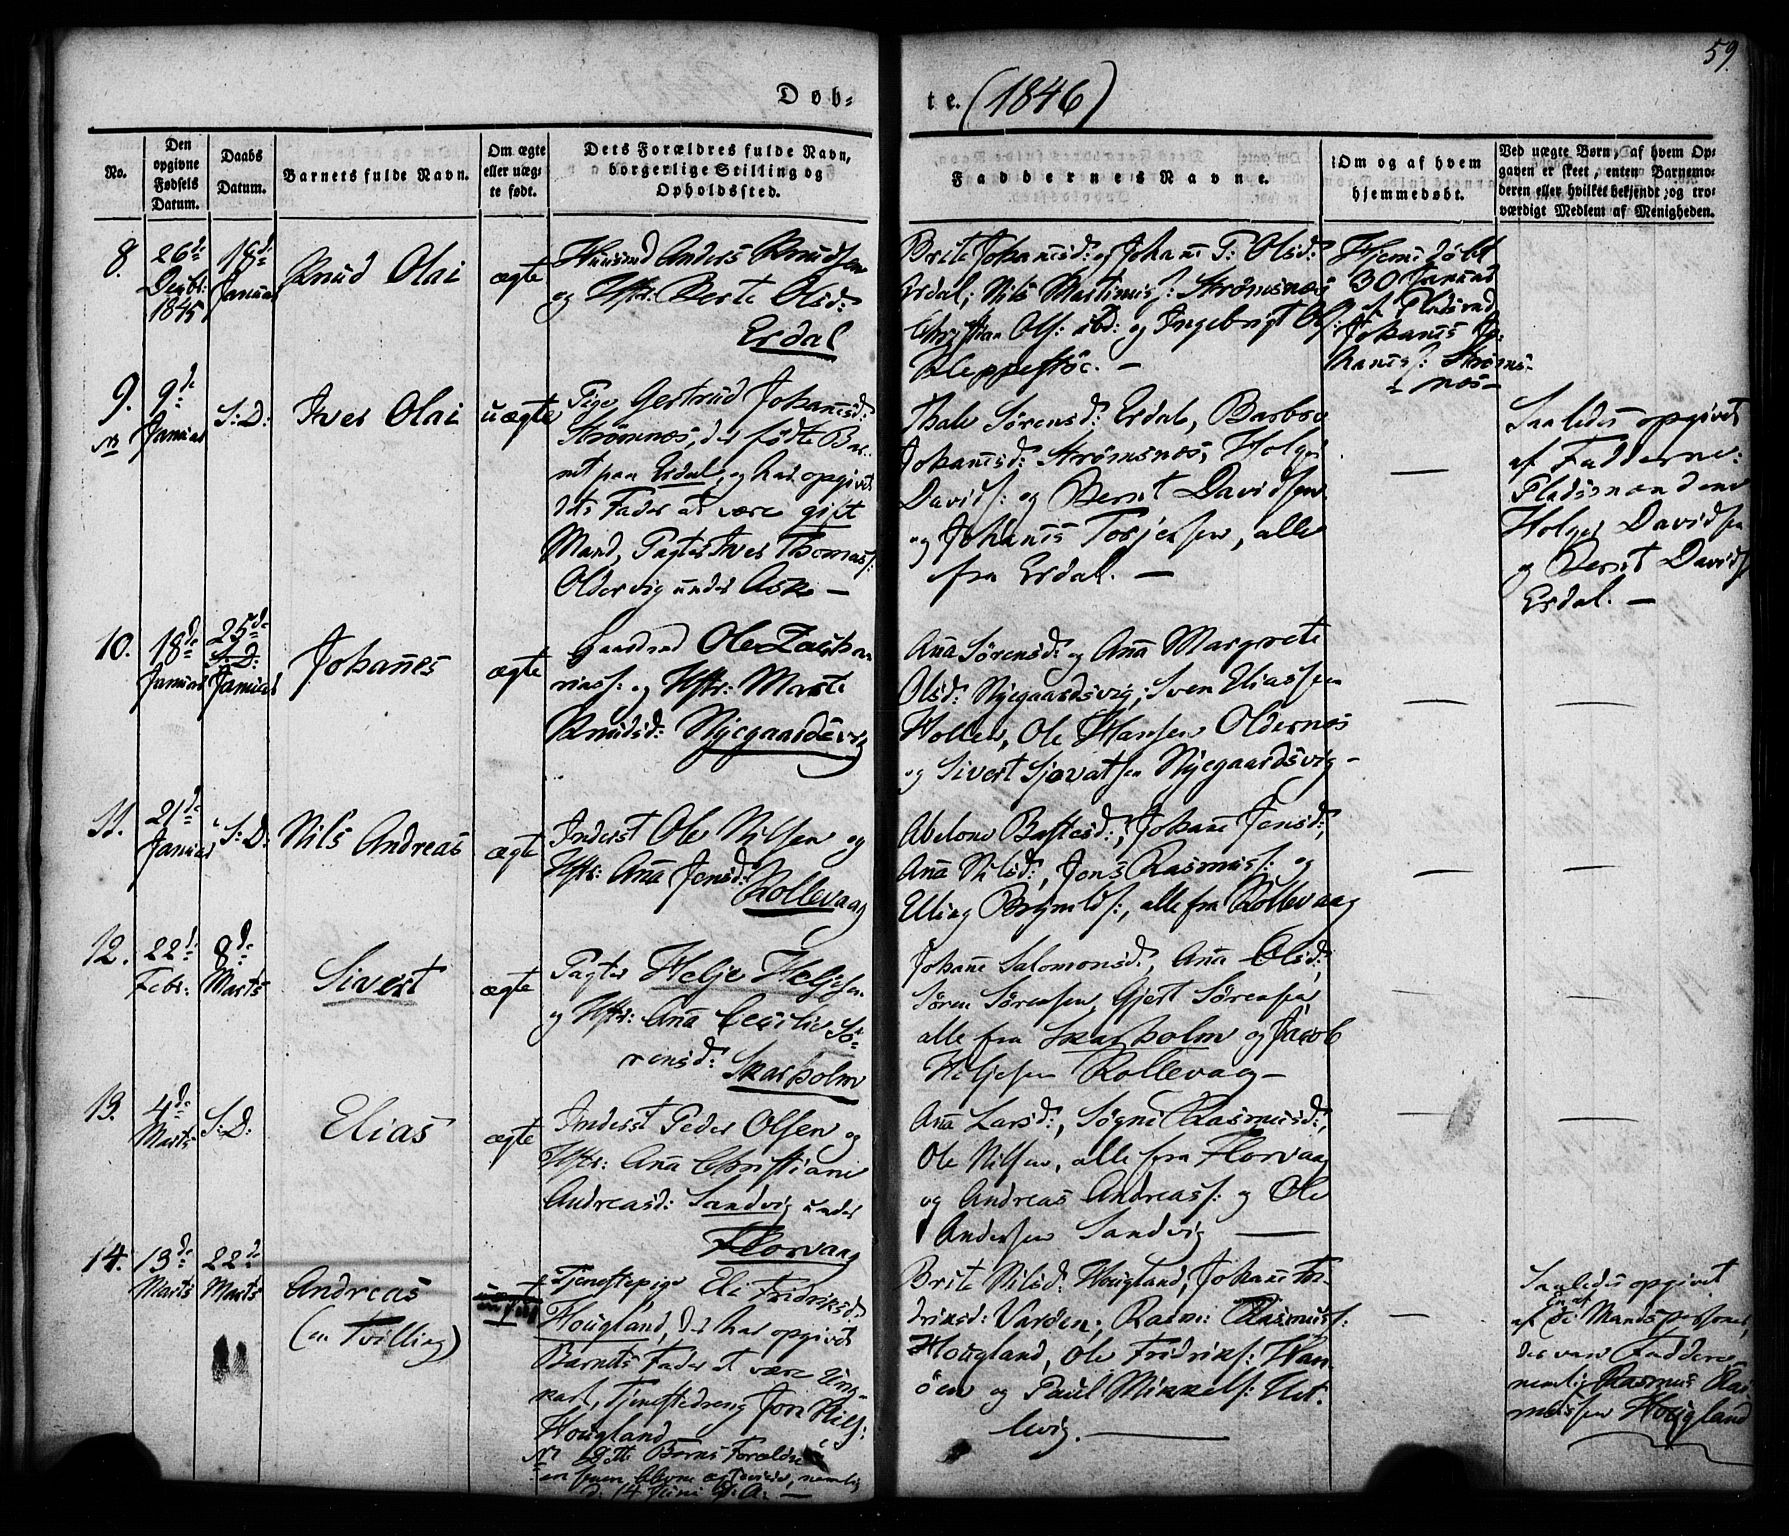 59.
Døb-
te. (1846)
No.
Den opgivne Fødsels Datum.
Daabs Datum.
Barnets fulde Navn.
Om ægte eller uægte født.
Dets Forældres fulde Navn, borgerlige Stilling og Opholdssted.
Faddernes Navne.
Om og af hvem hjemmedøbt.
Ved uægte Børn, af hvem Opgaven er skeet, enten Barnemoderen eller hvilket bekjendt og troværdigt Medlem af Menigheden.
8.
26de
Decbr:
1845
18de
Januar
Knud Olai
ægte
Huusmd Anders Knudsen
og Hstr: Berte Olsd:
Erdal
Brite Johannesd: og Johanne Olsd:
Erdal; Nils Martinus: Strømsnæs
Christian Ols: ibd: og Ingebrigt
Kleppestöe. —
Hjemedöbt
30 Januar
af Pladsmd
Johannes Jo-
hanes: Strøms-
næs —
9.
9de
Januar
S: D:
Iver Olai
uægte
Pige Gertrud Johannesd:
Strømsnæs, der födte Bar-
net paa Erdal, og har opgivet
dets Fader at være gift
Mand, Pagter Iver Thomass:
Oldervig under Ask —
Thale Sörensd: Erdal, Barbro
Johannesd: Strømsnæs, Holger
Davids: og Bernt Davidsen
og Johannes Torjersen, alle
fra Erdal. —
Saaledes opgivet
af Fadderne:
Pladsmændene
Holger Davidsen
og Bernt Davids:
Erdal. —
10.
18de
Januar
25de
S: D:
Januar
Johannes
ægte
Gaardmd Ole Zacha-
rias: og Hstr: Marte
Knudsd: Nygaardsvig
Anna Sörensd: og Anna Margrete
Olsd: Nygaardsvig; Sven Eliassen
Holen, Ole Hansen Oldernæs
og Sivert Sjovatsen Nygaardsvig —
11.
21de
Januar
S: D:
Nils Andreas
ægte
Inderst Ole Nilsen og
Hstr: Anna Jensd:
Rollevaag
Abelone Bastesd:, Johanne Jensd:,
Anna Nilsd:, Jens Rasmuss: og
Elling Brynilds:, alle fra Rollevaag
12.
22de
Febr:
8de
Marts
Sivert
ægte
Pagter Helje Heljesen
og Hstr: Anna Cecilie Sö-
rensd: Skarholm
Johanne Salomonsd:, Anna Olsd:,
Sören Sörensen, Gjert Sörensen,
alle fra Skarholm og Jacob
Heljesen Rollevaag —
13.
4de
Marts
S: D:
Elias
ægte
Inderst Peder Olsen og
Hstr: Anna Christiane
Andreasd: Sandvig under
Florvaag
Anna Larsd:, Søgni Rasmusd:,
Ole Nilsen, alle fra Florvaag
og Andreas Andreass: og Ole
Andersen Sandvig —
14.
13de
Marts
22de
Marts
Andreas
(en Tvilling)
uægte
Tjenestepige Eli Fridriksd:
Hougland, der har opgivet
Barnets Fader at være Ung-
karl, Tjenestedreng Jon Nils:
Hougland
NB dette Barns Forældre
ere siden blevne ægteviede, nemlig
d: 14 Juni d: A: —
Brite Nilsd: Hougland, Johanne Fri-
driksd: Varden; Rasm: Rasmuss:
Hougland, Ole Fridriks: Han-
öen og Paul Mikkels: Het-
levig. —
Saaledes opgivet
af en af de Mandspersoner,
der vare Faddere,
nemlig Rasmus Ras-
mussen Hougland